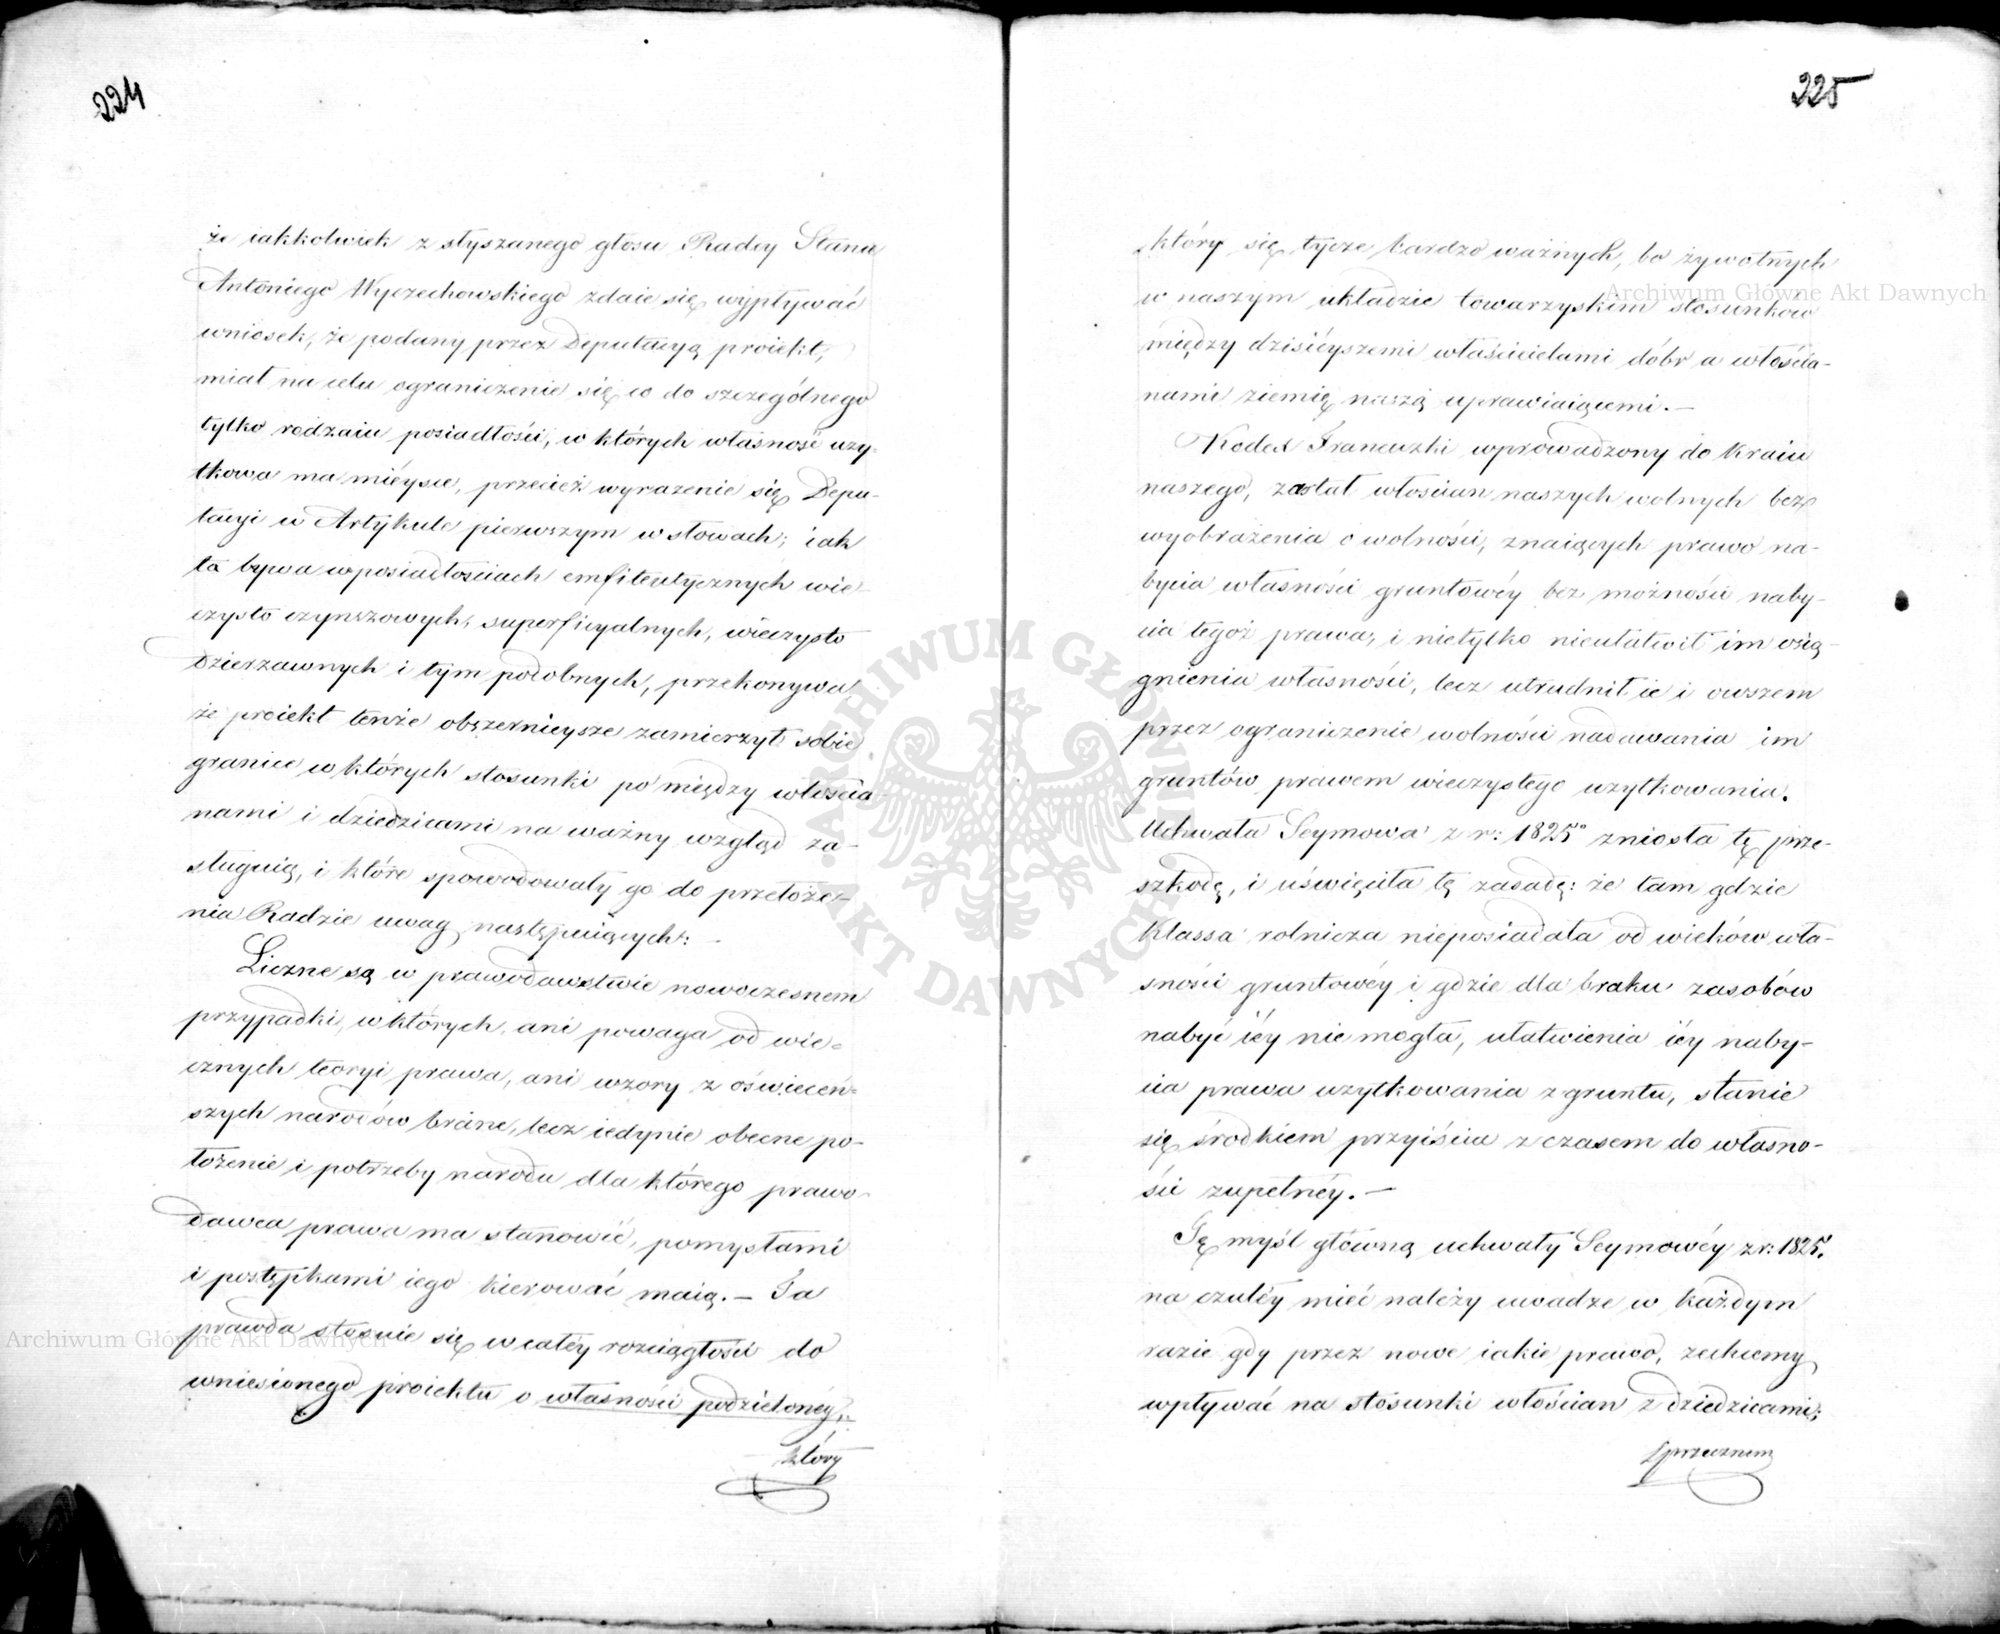 224
że iakkolwiek z słyszanego głosu Radcy Stanu
Antoniego Wyczechowskiego zdaie się wypływać
wniosek, że podany przez Deputacyą proiekt,
miał na celu ograniczenie się co do szczególnego
tylko rodzaiu posiadłości, w których własność uży-
tkowa ma mieysce, przecież wyrażenie się Depu-
tacyi w Artykule pierwszym w słowach; iak
to bywa w posiadłościach emfiteutycznych wie-
czysto czynszowych, superficyalnych, wieczysto
dzierzawnych i tym podobnych, przekonywa,
że proiekt tenże obszernieysze zamierzył sobie
granice w których stosunki po między włościa-
nami i dziedzicami na ważny wzgląd za-
sługuią, i które spowodowały go do przełoże-
nia Radzie uwag następuiących: –
Liczne są w prawodawstwie nowoczesnem
przypadki, w których, ani powaga od wie-
cznych teoryi prawa, ani wzory z oświeceń-
szych narodów brane, lecz iedynie obecne po-
łożenie i potrzeby narodu dla którego prawo-
dawca prawa ma stanowić, pomysłami
i postępkami iego kierować maią. – Ta
prawda stosuie się w całéy rozciągłości do
wniesionego proiektu o własności podzielonéy,
który
225
który się tycze bardzo ważnych, bo żywotnych
w naszym układzie towarzyskim stosunków
między dzisiéyszemi właścicielami dóbr a włościa-
nami ziemię naszą uprawiaiącemi. –
Kodex Francuzki wprowadzony do Kraiu
naszego, zastał włościan naszych wolnych bez
wyobrażenia o wolności, znaiących prawo na-
bycia własności gruntowéy bez możności naby-
cia tegoż prawa, i nietylko nieułatwił im osią-
gnienia własności, lecz utrudnił ie i owszem
przez ograniczenie wolności nadawania im
gruntów prawem wieczystego użytkowania.
Uchwała Seymowa z r: 1825º zniosła tę prze-
szkodę, i uświęciła tę zasadę: że tam gdzie
Klassa rolnicza nieposiadała od wieków wła-
sności gruntowéy i gdzie dla braku zasobów
nabyć iéy nie mogła, ułatwienia iéy naby-
cia prawa użytkowania z gruntu, stanie
się środkiem przyiścia z czasem do własno-
ści zupełnéy. –
Tę myśl główną uchwały Seymowéy z r: 1825.
na czułéy mieć należy uwadze w każdym
razie gdy przez nowe iakie prawo, zechcemy
wpływać na stosunki włościan z dziedzicami;
sprzecznem
ARCHIWUM GŁÓWNE AKT DAWNYCH
Archiwum Główne Akt Dawnych
Archiwum Główne Akt Dawnych